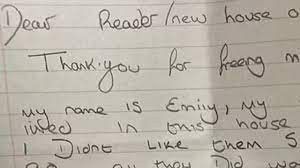 Dear Reader/new house o
Thank you for freeing m
my name is Emily, my
lived in this house
I Didnt Like them S
all they Did wa